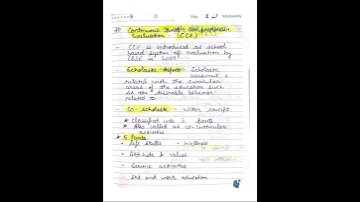 May Wednesday
# Continuous and comprehensive
Evaluation (CCE)
- CCE is introduced as school
based system of evaluation by
CBSE in 2009
- Scholastic Aspect - Scholastic
assessment is
related with the curricular
areas of the education such
as the desirable behavior
related to
- Co-scholastic - wider concept
* Classified into 5 parts
* Also called as co-curricular
activities
* 5 parts
- Life skills - Wellness
- Attitude & Values
- Service activities
- Art and work education